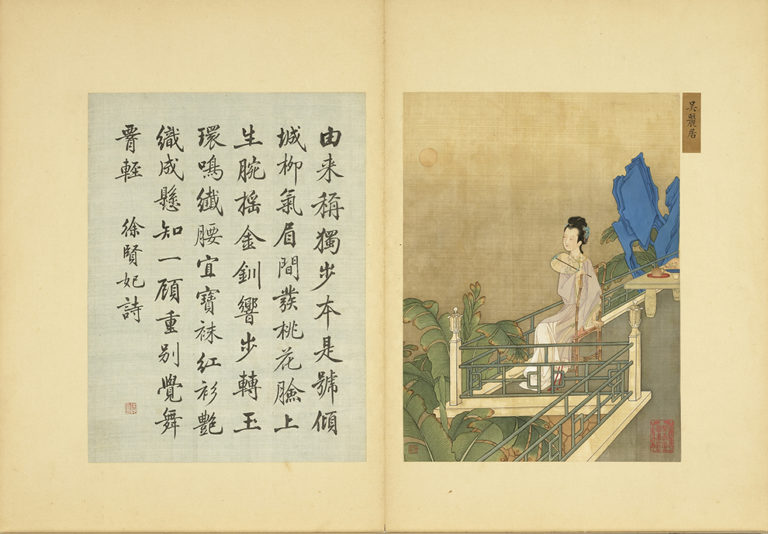 吳麗居
由来稱獨步本是號傾
城柳氣眉間發桃花臉上
生腕搖金釧響步轉玉
環鳴纖腰宜寶袜紅衫艷
織成懸知一顧重別覺舞
腰輕 徐賢妃詩